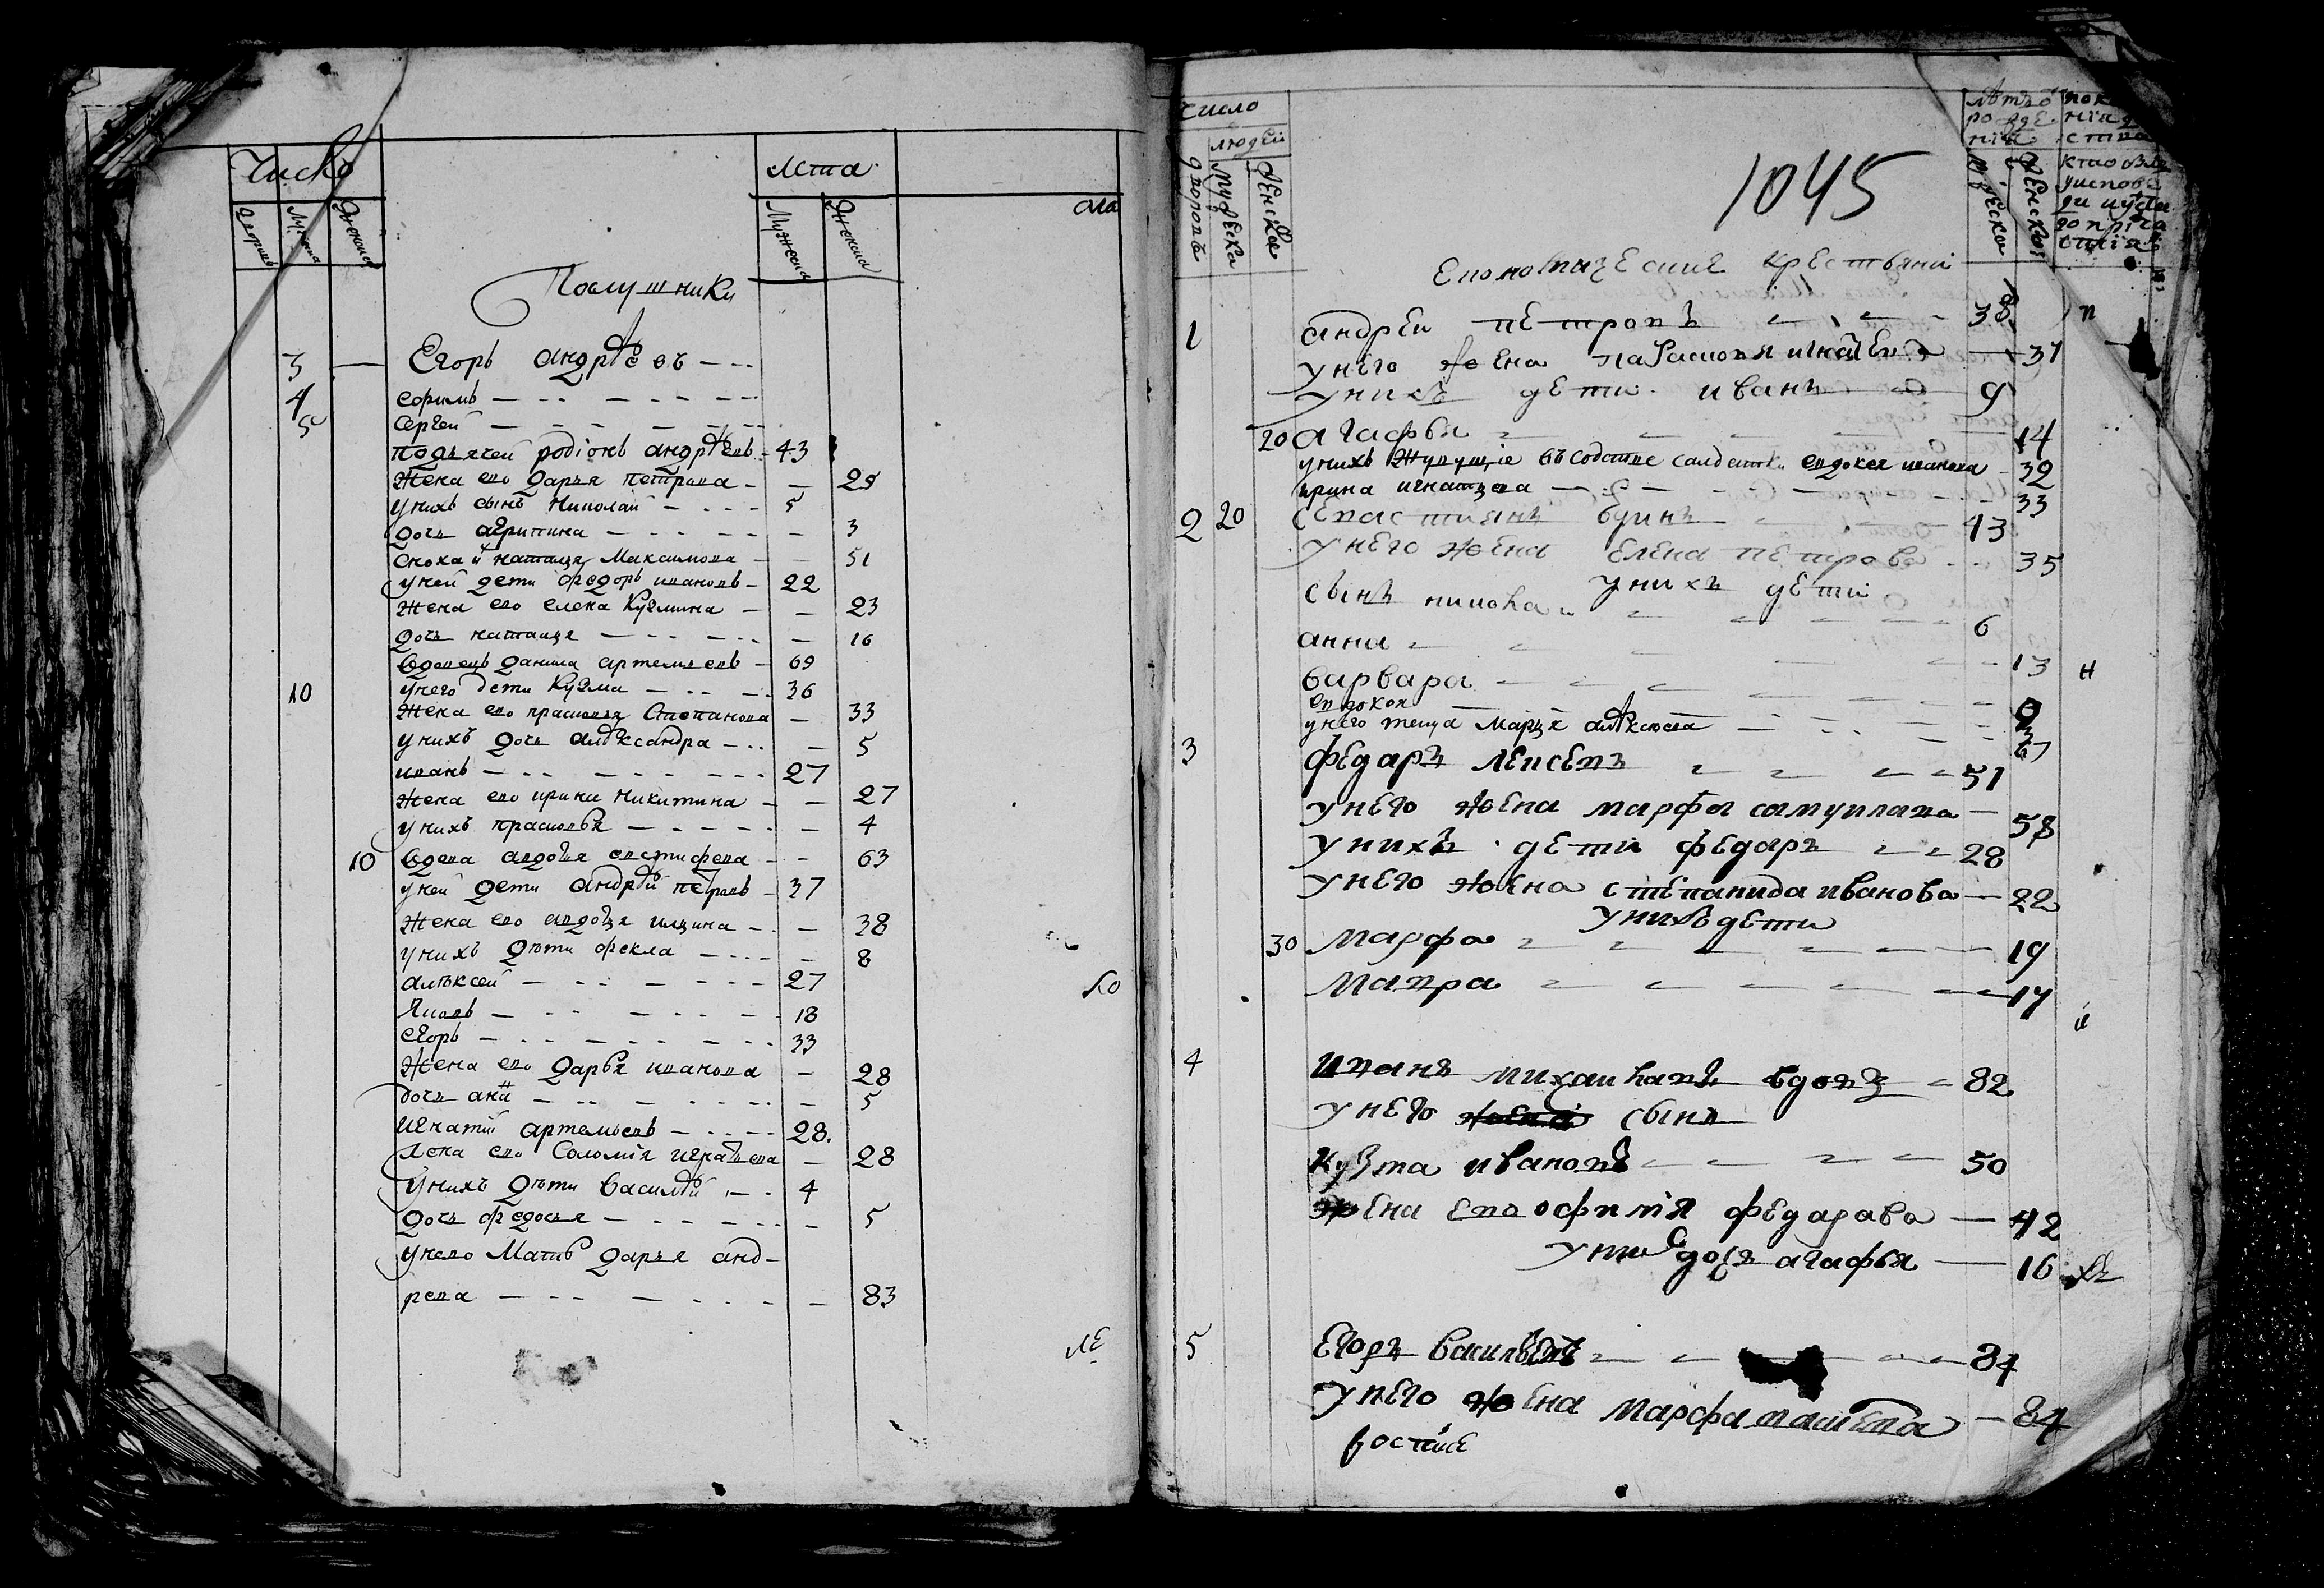 Число
Лета
Дворовъ
Мужеска
Женска
Мужеска
Женска
Послушники
3 — Егоръ андрѣевъ — - -
4 ефимъ — - - — - - — - -
5 Сергей — - - — - - — - -
подъячей родіонъ андрѣевъ - 43
Жена ево дарья петрова - — 25
унихъ сынъ Николай — - - - 5
дочь агрипина — - - - - — 3
сноха и наталья Максимова — — 51
уней дети федоръ ивановъ - 22
жена ево елена Кузмина — — 23
дочь наталья — - - - - - — 16
вдовецъ данила артемьевъ - 69
10 унего дети Кузма — - - — - 36
Жена ево прасковья Степанова — 33
унихъ дочь алѣксандра — - - — 5
иванъ — - - — - - — - - - 27
жена ево ирина никитина - — 27
унихъ прасковья — - - - - — 4
10 вдова авдотья евстифева - - 63
уней дети андрѣй петровъ - 37
жена ево авдотья ильина — - — 38
унихъ дѣти фекла — - - - — 8
алѣксей — - - — - - - 27
Яковъ — - - — - - — - 18
егоръ — - - — - - — - - 33
Жена ево дарья иванова — 28
дочь анна — - - — - - - — 5
игнатій артемьевъ — - - - - 28.
жена ево Соломія — 28
унихъ дѣти василѣй — - 4
дочь федосья — - - - - - — 5
унево Мать дарья анд-
рева — - - — - - - - — 83
ло
ле
число
людей
дворовъ
мужеска
женска
1045
лѣтъ о
рожде
нія
мужеска
женска
Економическия крестьяни
1 андреи петровъ - - - 38
унего жена парасковья игнатева — 37
унихъ дети иванъ - - 9
20 агафья - - - - 14
унихъ живущие въ содстве салдатка евдокея иванова - 32
ирина игнатьева — - - — - - 33
2 20 севастиянъ - - - 43
унего жена елена петрова - - 35
унихъ дети
сынъ никола - - - - 6
анна - - - - - 13 н
варвара - - - - 9
евдокея - - -
унего теща Марья алѣксиева — - - 67
3 федаръ - - - - 51
унего жена марфа самуилава — 58
унихъ дети федаръ - - 28
унего жена степанида иванова — 22
унихъ дети
30 марфа - - - - - 19
мавра - - - - - 17
4 иванъ михаилавъ вдовъ - 82
унего жена сынъ
кузма ивановъ - - - - 50
жена ево офимія федарава — 42
дочь агафья — 16
5 егоръ васильевъ - - - - 84
унего жена марфа — 84